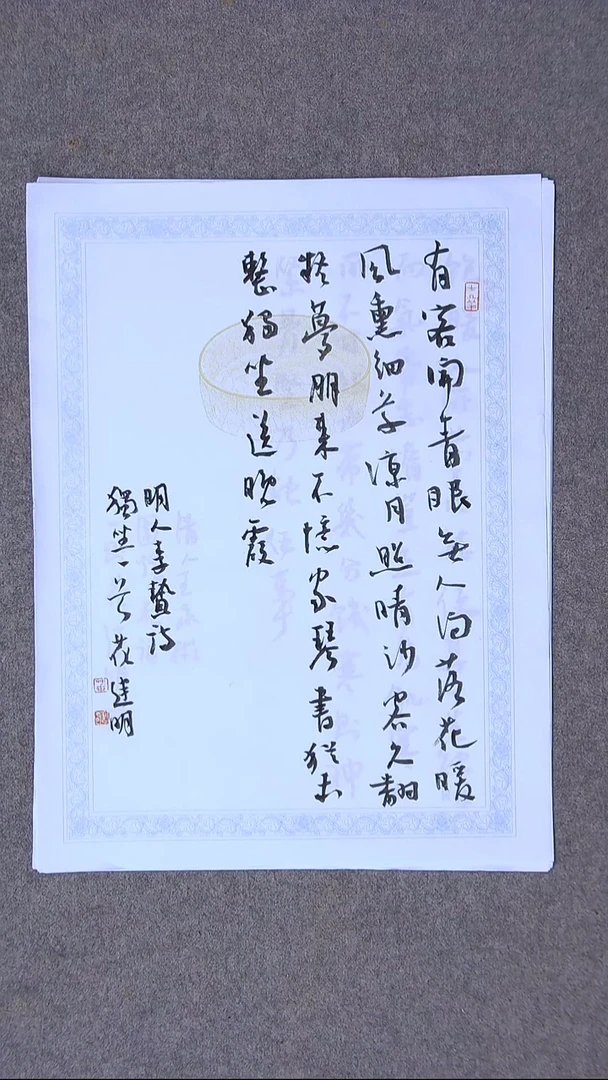 有客開青眼無人問落花暖
風熏細草涼月照晴沙客久翻
疑夢朋來不憶家琴書猶未
整獨坐送晚霞
明人李贄詩
獨坐一首 建明